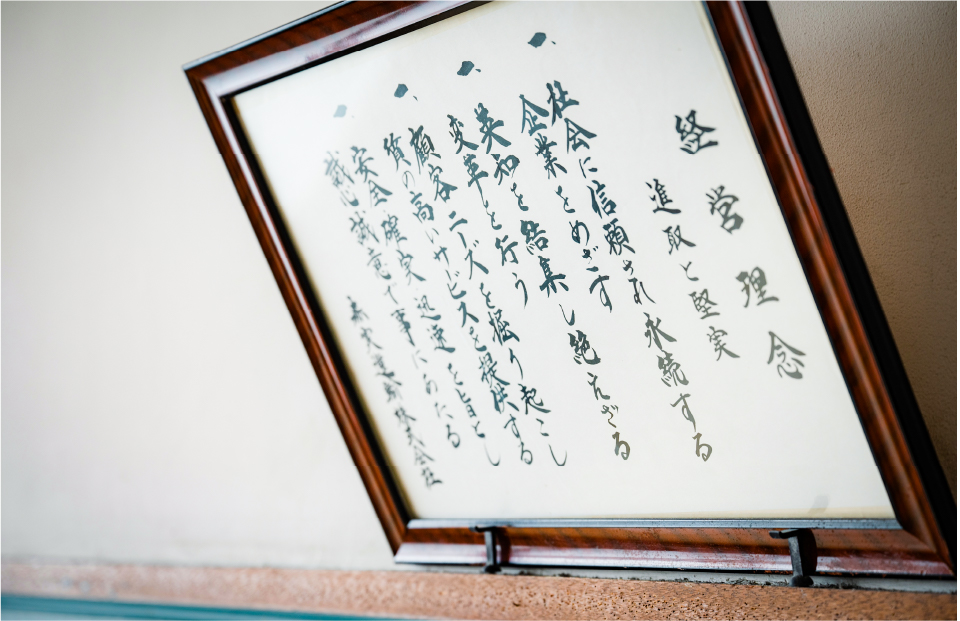 経営理念
進取と堅実
一、社会に信頼され永続する
企業をめざす
一、英知を結集し絶えざる
変革を行う
一、顧客ニーズを掘り起こし
質の高いサービスを提供する
一、安全確実迅速を旨とし
誠心誠意で事にあたる
森実運輸株式会社